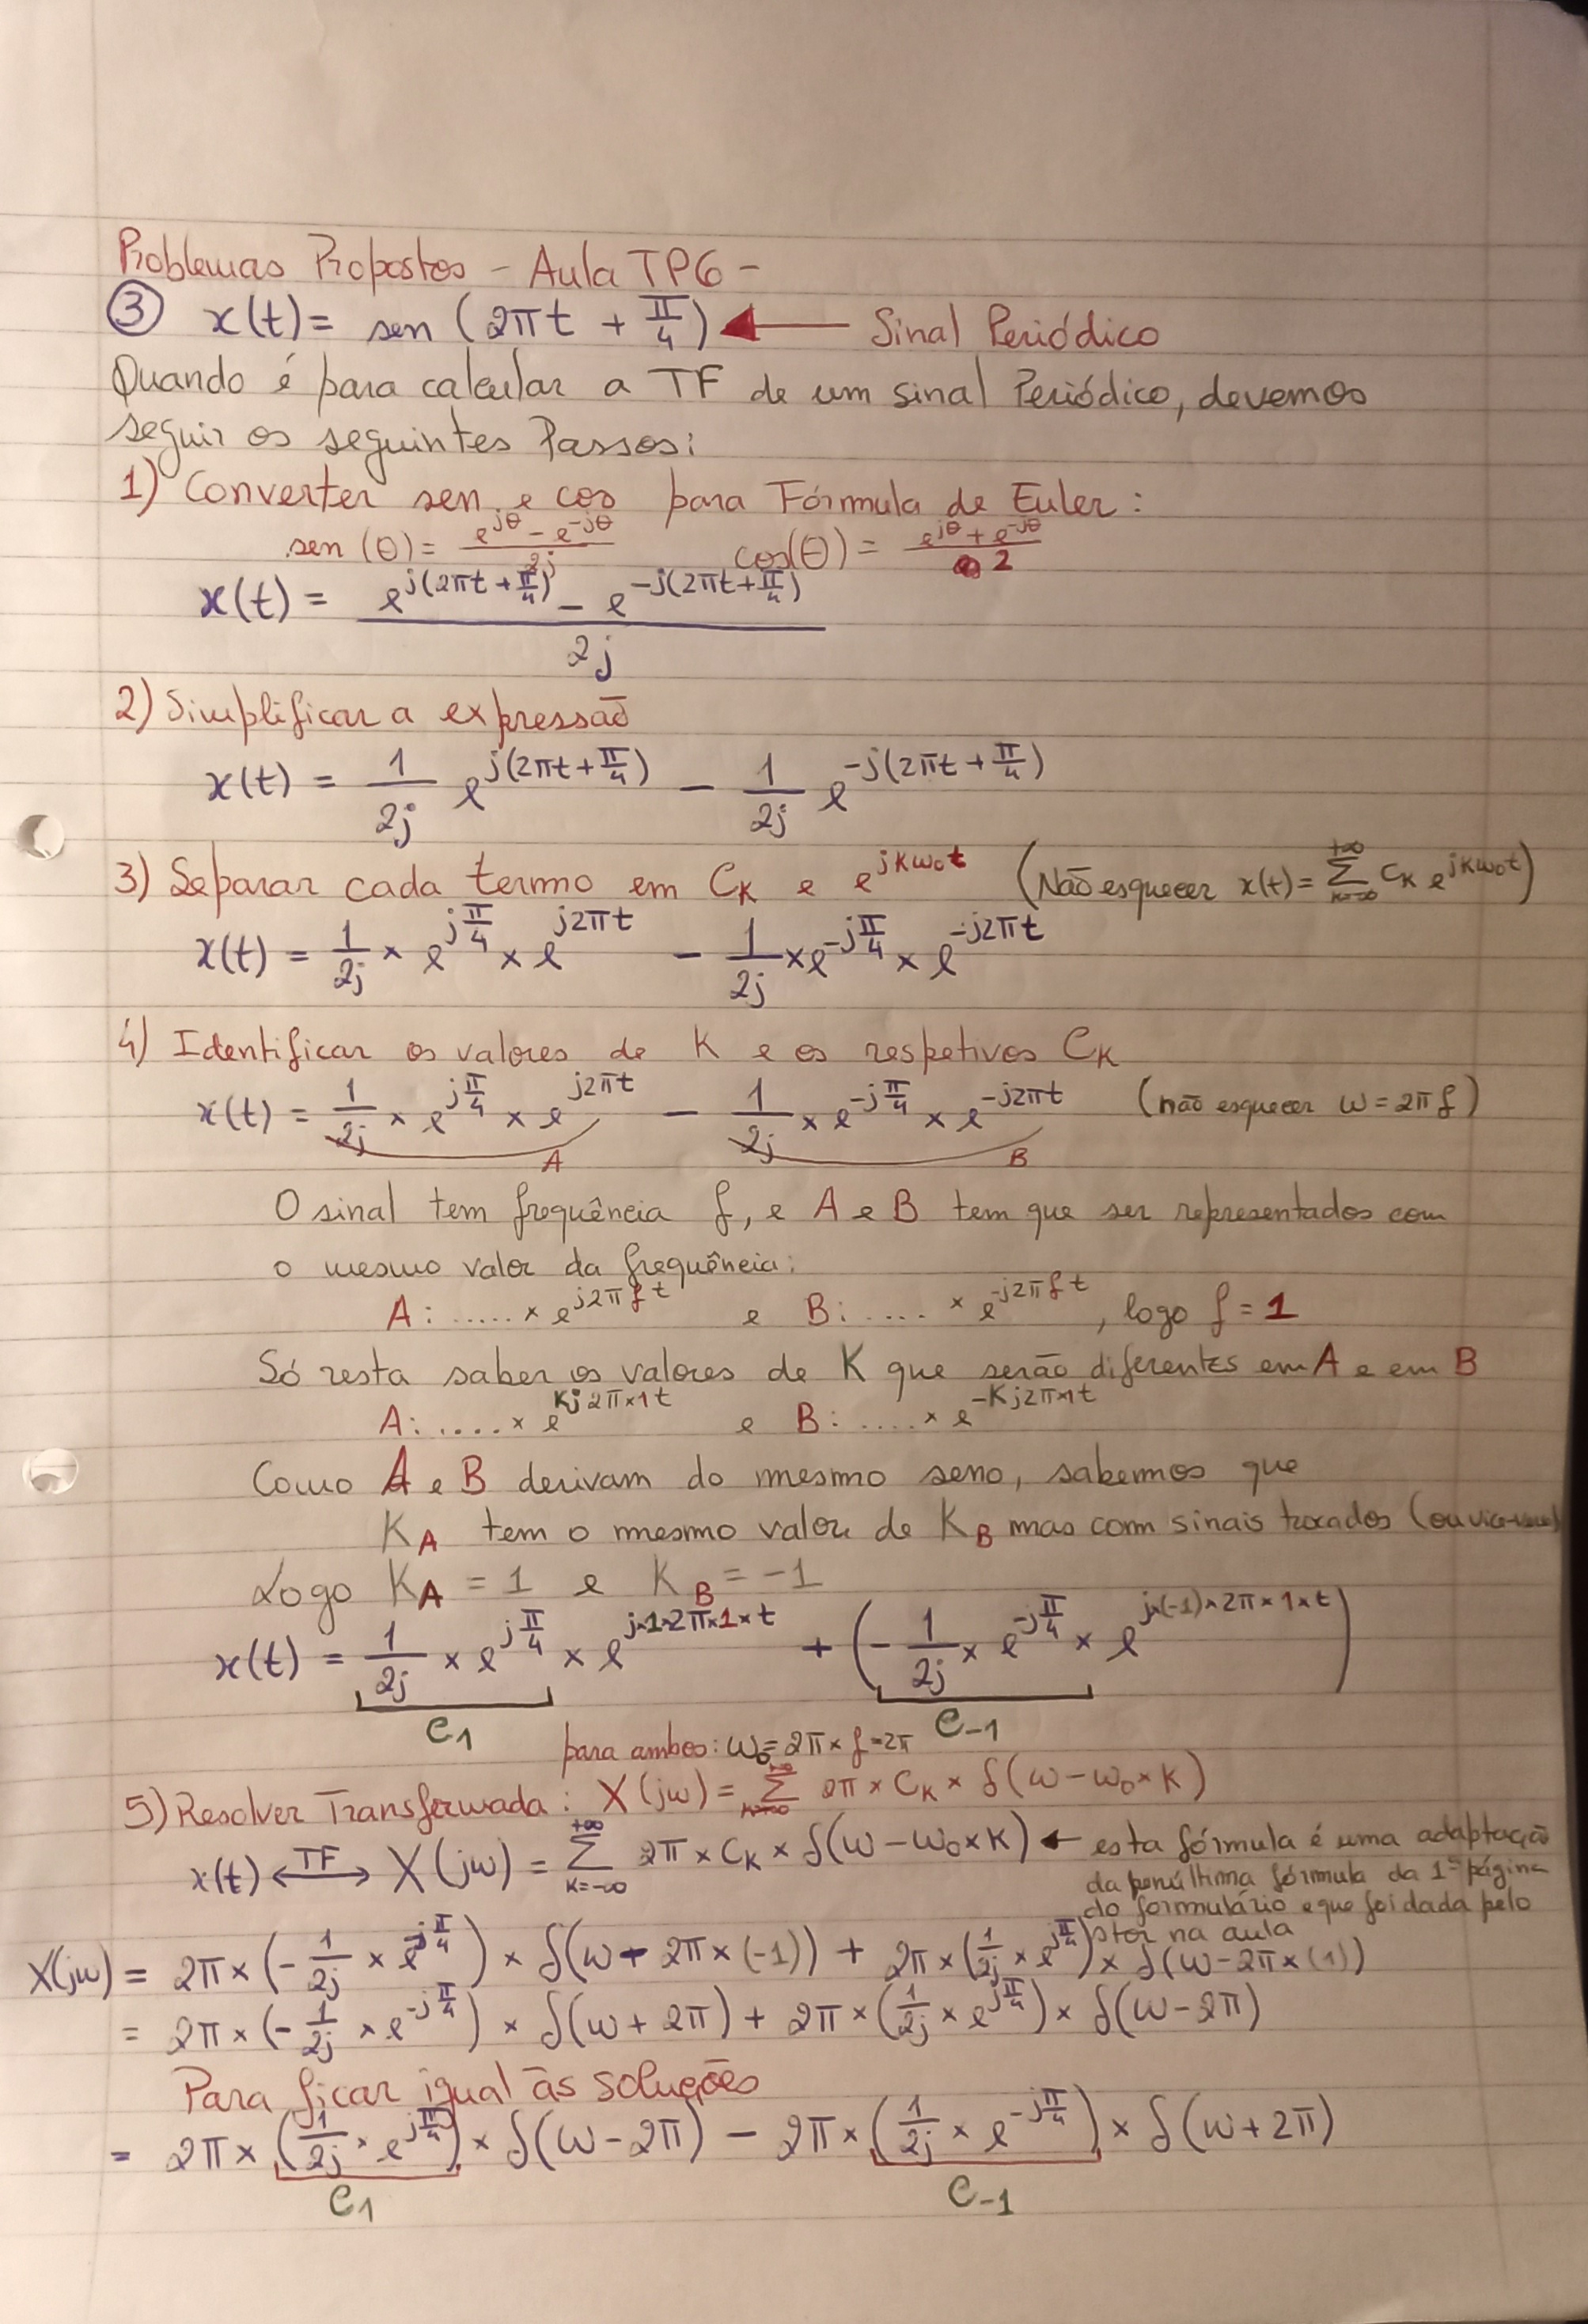 Problemas Propostos - Aula TP6 -
③ x(t) = sen (2πt + π/4) ← Sinal Periódico
Quando é para calcular a TF de um sinal Periódico, devemos
seguir os seguintes Passos:
1) Converter sen e cos para Fórmula de Euler:
sen (θ) = (e^{jθ} - e^{-jθ})/2j    cos(θ) = (e^{jθ} + e^{-jθ})/2
x(t) = (e^{j(2πt + π/4)} - e^{-j(2πt + π/4)})/2j
2) Simplificar a expressão
x(t) = 1/2j e^{j(2πt + π/4)} - 1/2j e^{-j(2πt + π/4)}
3) Separar cada termo em C_K e e^{jKω₀t} (Não esquecer x(t) = Σ_{K=-∞}^{+∞} C_K e^{jKω₀t})
x(t) = 1/2j × e^{jπ/4} × e^{j2πt} - 1/2j × e^{-jπ/4} × e^{-j2πt}
4) Identificar os valores de K e os respetivos C_K
x(t) = 1/2j × e^{jπ/4} × e^{j2πt} - 1/2j × e^{-jπ/4} × e^{-j2πt} (não esquecer ω = 2πf)
A B
O sinal tem frequência f, e A e B tem que ser representados com
o mesmo valor da frequência:
A: ..... × e^{j2πft} e B: .... × e^{-j2πft}, logo f = 1
Só resta saber os valores de K que serão diferentes em A e em B
A: ..... × e^{Kj2π×1t} e B: .... × e^{-Kj2π×1t}
Como A e B derivam do mesmo seno, sabemos que
K_A tem o mesmo valor de K_B mas com sinais trocados (ou vice-versa)
Logo K_A = 1 e K_B = -1
x(t) = 1/2j × e^{jπ/4} × e^{j×1×2π×1×t} + (- 1/2j × e^{-jπ/4} × e^{j×(-1)×2π×1×t})
C₁ C₋₁
para ambos: ω₀ = 2π × f = 2π
5) Resolver Transformada: X(jω) = Σ_{K=-∞}^{+∞} 2π × C_K × δ(ω - ω₀ × K)
x(t) ←TF→ X(jω) = Σ_{K=-∞}^{+∞} 2π × C_K × δ(ω - ω₀ × K) ← esta fórmula é uma adaptação
da penúltima fórmula da 1ª página
do formulário e que foi dada pelo
stor na aula
X(jω) = 2π × (- 1/2j × e^{-jπ/4}) × δ(ω - 2π × (-1)) + 2π × (1/2j × e^{jπ/4}) × δ(ω - 2π × (1))
= 2π × (- 1/2j × e^{-jπ/4}) × δ(ω + 2π) + 2π × (1/2j × e^{jπ/4}) × δ(ω - 2π)
Para ficar igual às soluções
= 2π × (1/2j × e^{jπ/4}) × δ(ω - 2π) - 2π × (1/2j × e^{-jπ/4}) × δ(ω + 2π)
C₁ C₋₁